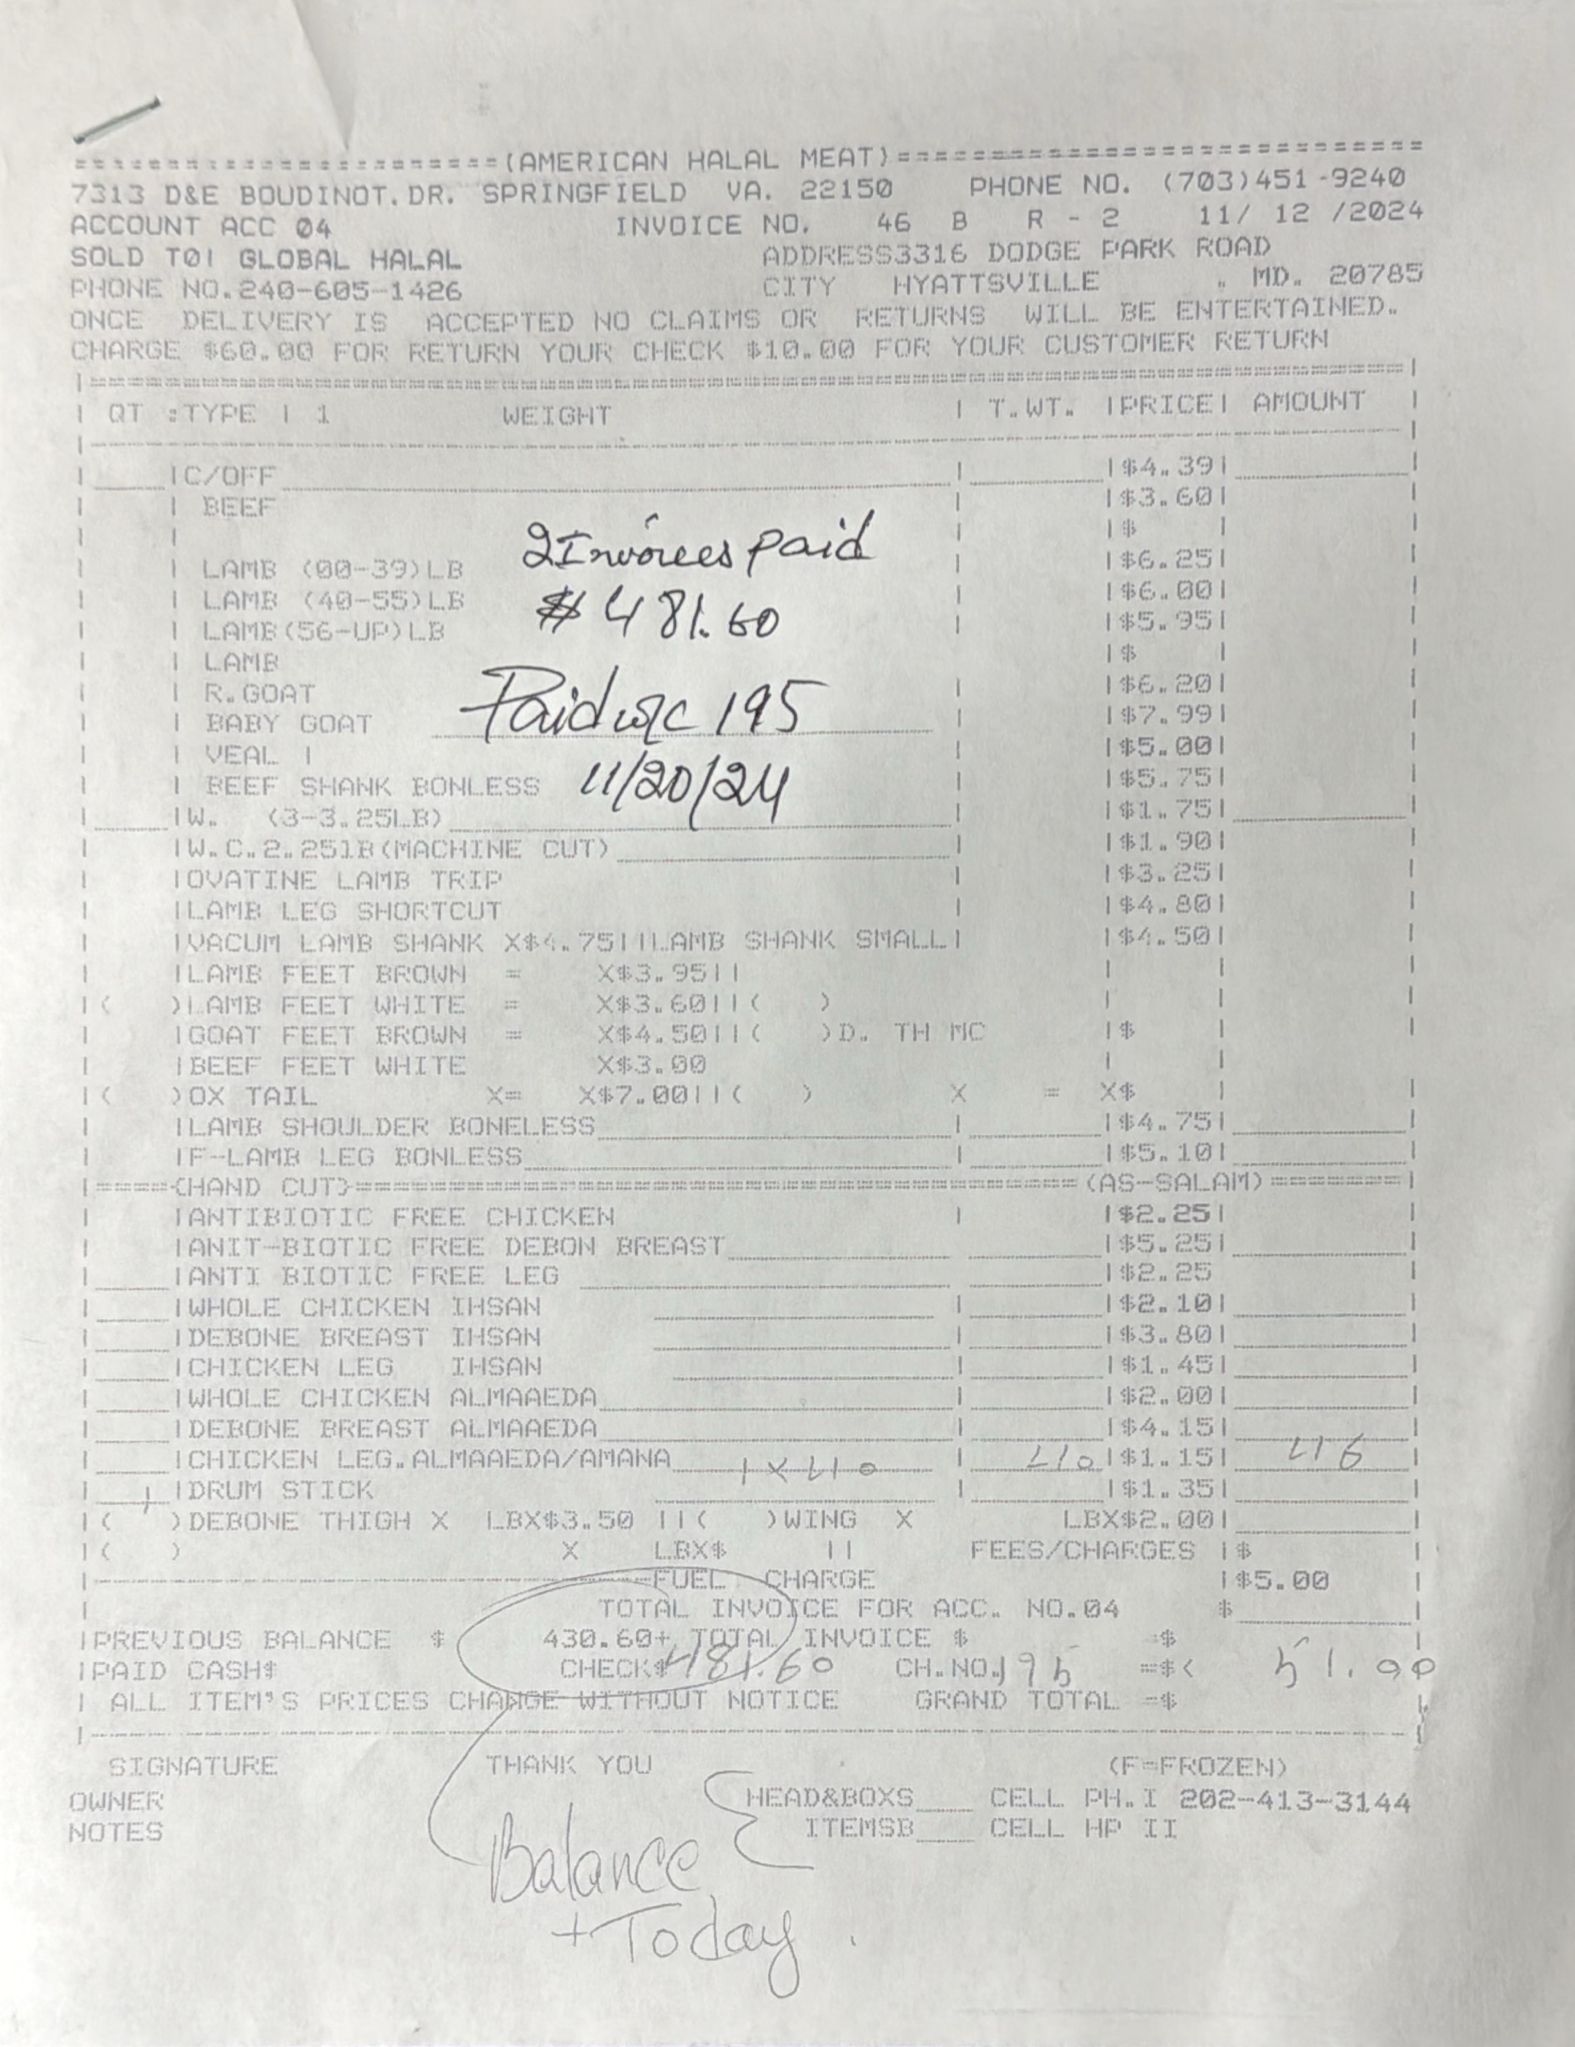 ============================(AMERICAN HALAL MEAT)============================
7313 D&E BOUDINOT.DR. SPRINGFIELD VA. 22150 PHONE NO. (703)451-9240
ACCOUNT ACC 04 INVOICE NO. 46 B R - 2 11/ 12 /2024
SOLD TO! GLOBAL HALAL ADDRESS3316 DODGE PARK ROAD
PHONE NO.240-605-1426 CITY HYATTSVILLE . MD. 20785
ONCE DELIVERY IS ACCEPTED NO CLAIMS OR RETURNS WILL BE ENTERTAINED.
CHARGE $60.00 FOR RETURN YOUR CHECK $10.00 FOR YOUR CUSTOMER RETURN
QT :TYPE | 1 WEIGHT | T.WT. |PRICE| AMOUNT
|C/OFF |$4.39|
| BEEF |$3.60|
| |$ |
2 Invoices paid
| LAMB (00-39)LB |$6.25|
| LAMB (40-55)LB |$6.00|
$ 481.60
| LAMB(56-UP)LB |$5.95|
| LAMB |$ |
| R.GOAT |$6.20|
| BABY GOAT Paid 195 |$7.99|
| VEAL | |$5.00|
| BEEF SHANK BONLESS 11/20/24 |$5.75|
|W. (3-3.25LB) |$1.75|
|W.C.2.25lB(MACHINE CUT) |$1.90|
|OVATINE LAMB TRIP |$3.25|
|LAMB LEG SHORTCUT |$4.80|
|VACUM LAMB SHANK X$4.75||LAMB SHANK SMALL| |$4.50|
|LAMB FEET BROWN = X$3.95||
|( )LAMB FEET WHITE = X$3.60||( )
|GOAT FEET BROWN = X$4.50||( )D. TH MC |$
|BEEF FEET WHITE X$3.00
|( )OX TAIL X= X$7.00||( ) X = X$
|LAMB SHOULDER BONELESS |$4.75|
|F-LAMB LEG BONLESS |$5.10|
|====(HAND CUT)====(AS-SALAM)====|
|ANTIBIOTIC FREE CHICKEN |$2.25|
|ANIT-BIOTIC FREE DEBON BREAST |$5.25|
|ANTI BIOTIC FREE LEG |$2.25
|WHOLE CHICKEN IHSAN |$2.10|
|DEBONE BREAST IHSAN |$3.80|
|CHICKEN LEG IHSAN |$1.45|
|WHOLE CHICKEN ALMAAEDA |$2.00|
|DEBONE BREAST ALMAAEDA |$4.15|
|CHICKEN LEG.ALMAAEDA/AMANA 1 X 40 40 |$1.15| 46
1 |DRUM STICK |$1.35|
|( )DEBONE THIGH X LBX$3.50 ||( )WING X LBX$2.00|
|( ) X LBX$ || FEES/CHARGES |$
FUEL CHARGE |$5.00
TOTAL INVOICE FOR ACC. NO.04 $
|PREVIOUS BALANCE $ 430.60+ TOTAL INVOICE $ =$
|PAID CASH$ CHECK$ 481.60 CH.NO. 195 =$< 51.00
| ALL ITEM'S PRICES CHANGE WITHOUT NOTICE GRAND TOTAL =$
SIGNATURE THANK YOU (F=FROZEN)
OWNER HEAD&BOXS CELL PH.I 202-413-3144
NOTES ITEMSB CELL HP II
Balance
+ Today